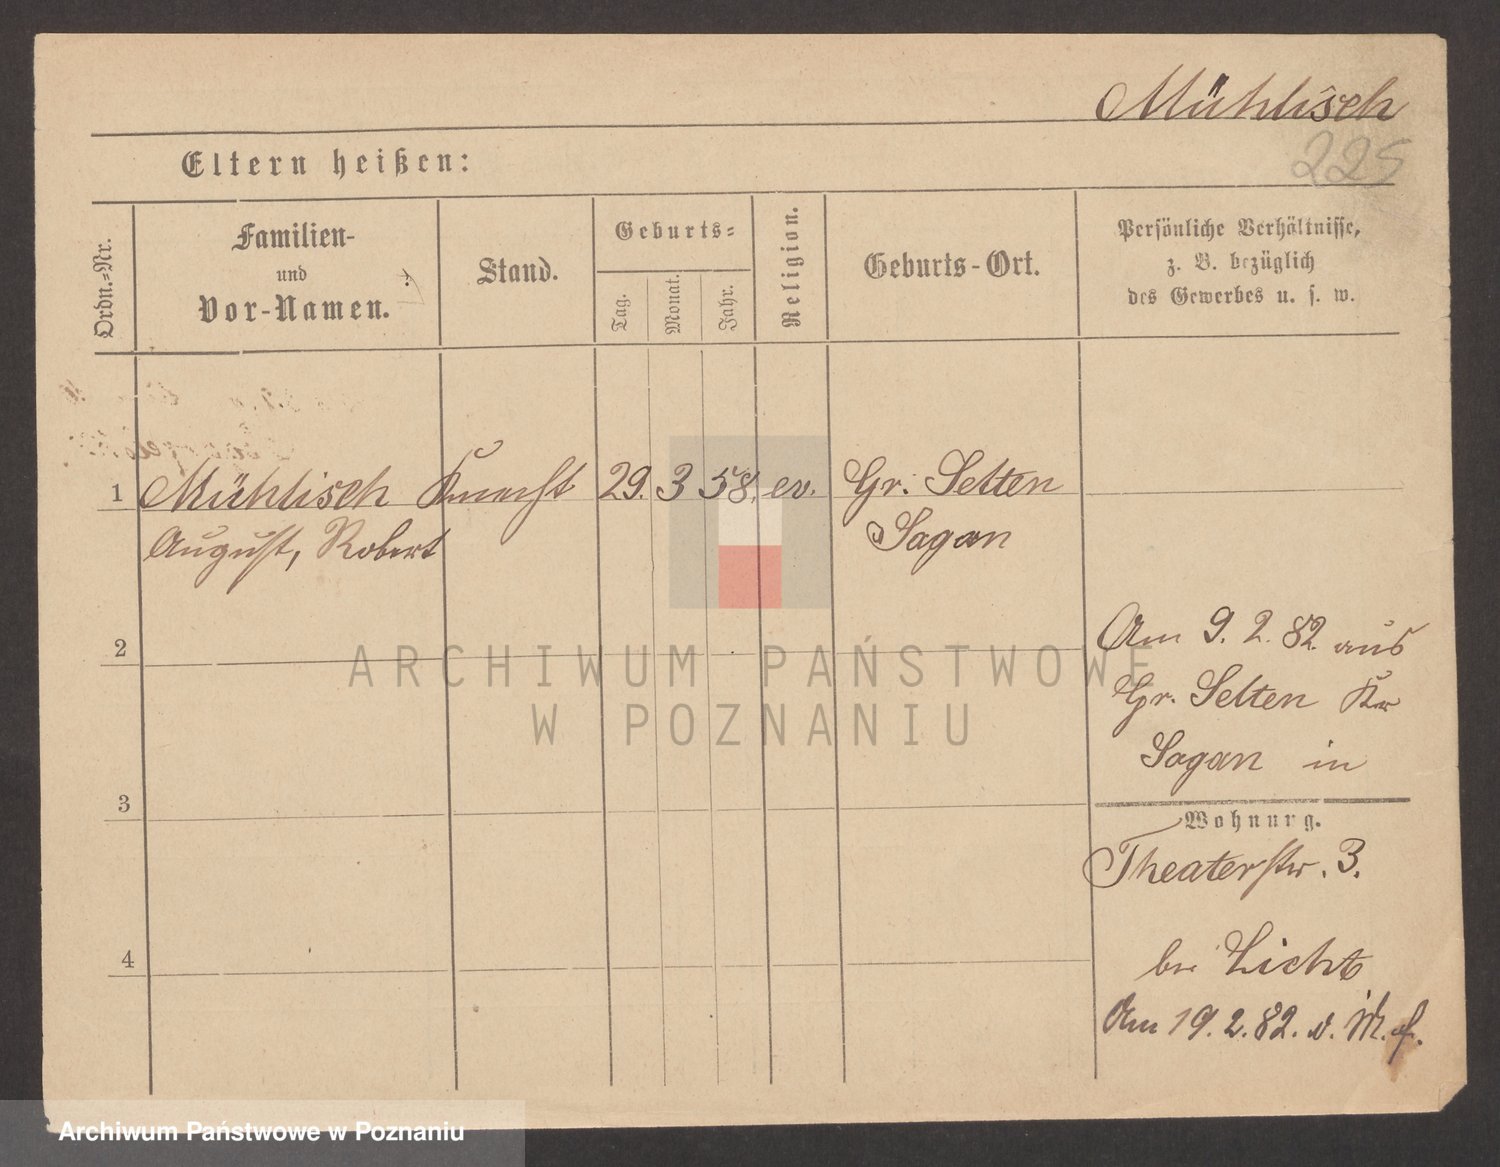 Mühlisch
225
Eltern heißen:
Ordn.-Nr.
Familien-
und
Vor-Namen.
Stand.
Geburts-
Tag.
Monat.
Jahr.
Religion.
Geburts-Ort.
Persönliche Verhältnisse,
z. B. bezüglich
des Gewerbes u. s. w.
1 Mühlisch Knecht 29. 3 58. ev. Gr. Selten
August, Robert Sagan
2
3
4
Am 9. 2. 82 aus
Gr. Selten Kr
Sagan in
Wohnung.
Theaterstr. 3.
bei Licht
Am 19. 2. 82. v.
ARCHIWUM PAŃSTWOWE
W POZNANIU
Archiwum Państwowe w Poznaniu